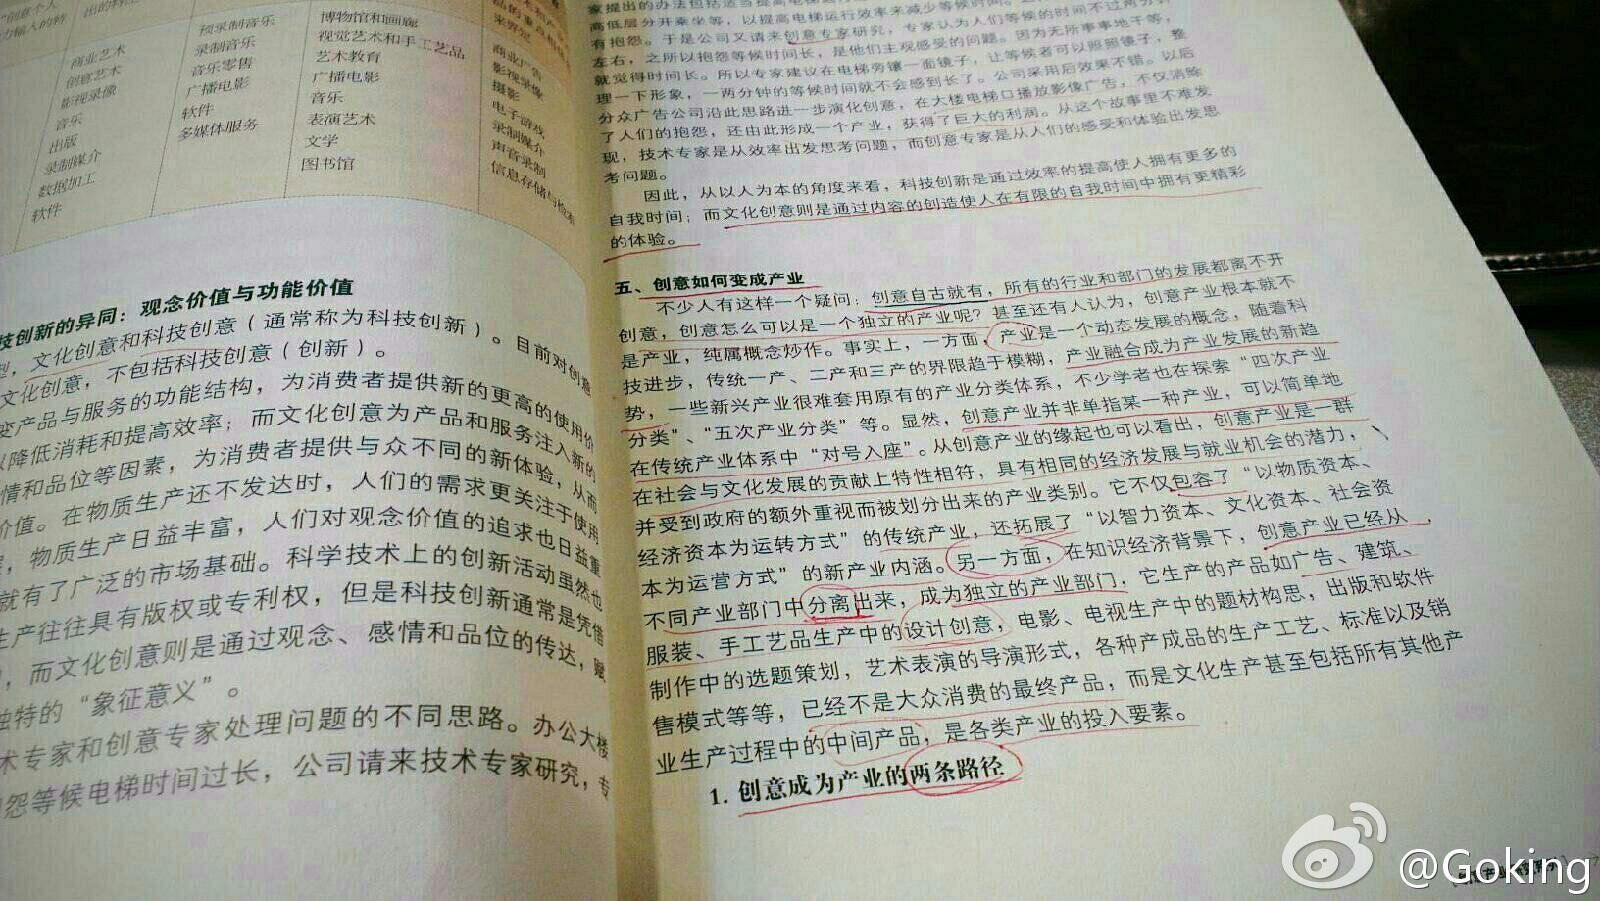 商业艺术
创意艺术
影视录像
音乐
出版
录制媒介
数据加工
软件
预录制音乐
录制音乐
音乐零售
广播电影
软件
多媒体服务
博物馆和画廊
视觉艺术和手工艺品
艺术教育
广播电影
音乐
表演艺术
文学
图书馆
商业广告
影视录像
摄影
电子游戏
录制媒介
声音录制
信息存储与检索
技创新的异同：观念价值与功能价值
型，文化创意和科技创意（通常称为科技创新）。目前对创意
文化创意，不包括科技创意（创新）。
变产品与服务的功能结构，为消费者提供新的更高的使用价
以降低消耗和提高效率；而文化创意为产品和服务注入新的
情和品位等因素，为消费者提供与众不同的新体验，从而
价值。在物质生产还不发达时，人们的需求更关注于使用
，物质生产日益丰富，人们对观念价值的追求也日益重
就有了广泛的市场基础。科学技术上的创新活动虽然也
生产往往具有版权或专利权，但是科技创新通常是凭借
，而文化创意则是通过观念、感情和品位的传达，赋
独特的“象征意义”。
术专家和创意专家处理问题的不同思路。办公大楼
抱怨等候电梯时间过长，公司请来技术专家研究，专
家提出的办法包括适当提高电梯运行
高低层分开乘坐等，以提高电梯运行效率来减少等候时间。
有抱怨。于是公司又请来创意专家研究，专家认为人们等候的时间不过两分钟
左右，之所以抱怨等候时间长，是他们主观感受的问题。因为无所事事地干等，
就觉得时间长。所以专家建议在电梯旁镶一面镜子，让等候者可以照照镜子，整
理一下形象，一两分钟的等候时间就不会感到长了。公司采用后效果不错。以后
分众广告公司沿此思路进一步演化创意，在大楼电梯口播放影像广告，不仅消除
了人们的抱怨，还由此形成一个产业，获得了巨大的利润。从这个故事里不难发
现，技术专家是从效率出发思考问题，而创意专家是从人们的感受和体验出发思
考问题。
因此，从以人为本的角度来看，科技创新是通过效率的提高使人拥有更多的
自我时间；而文化创意则是通过内容的创造使人在有限的自我时间中拥有更精彩
的体验。
五、创意如何变成产业
不少人有这样一个疑问：创意自古就有，所有的行业和部门的发展都离不开
创意，创意怎么可以是一个独立的产业呢？甚至还有人认为，创意产业根本就不
是产业，纯属概念炒作。事实上，一方面，产业是一个动态发展的概念，随着科
技进步，传统一产、二产和三产的界限趋于模糊，产业融合成为产业发展的新趋
势，一些新兴产业很难套用原有的产业分类体系，不少学者也在探索“四次产业
分类”、“五次产业分类”等。显然，创意产业并非单指某一种产业，可以简单地
在传统产业体系中“对号入座”。从创意产业的缘起也可以看出，创意产业是一群
在社会与文化发展的贡献上特性相符，具有相同的经济发展与就业机会的潜力，
并受到政府的额外重视而被划分出来的产业类别。它不仅包容了“以物质资本、
经济资本为运转方式”的传统产业，还拓展了“以智力资本、文化资本、社会资
本为运营方式”的新产业内涵。另一方面，在知识经济背景下，创意产业已经从
不同产业部门中分离出来，成为独立的产业部门，它生产的产品如广告、建筑、
服装、手工艺品生产中的设计创意，电影、电视生产中的题材构思，出版和软件
制作中的选题策划，艺术表演的导演形式，各种产成品的生产工艺、标准以及销
售模式等等，已经不是大众消费的最终产品，而是文化生产甚至包括所有其他产
业生产过程中的中间产品，是各类产业的投入要素。
1. 创意成为产业的两条路径
@Goking